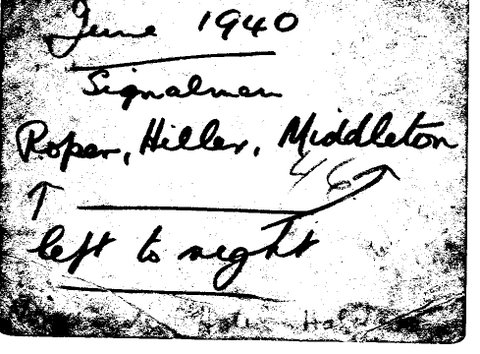 June 1940
Signalmen
Roper, Hiller, Middleton
46
left to right